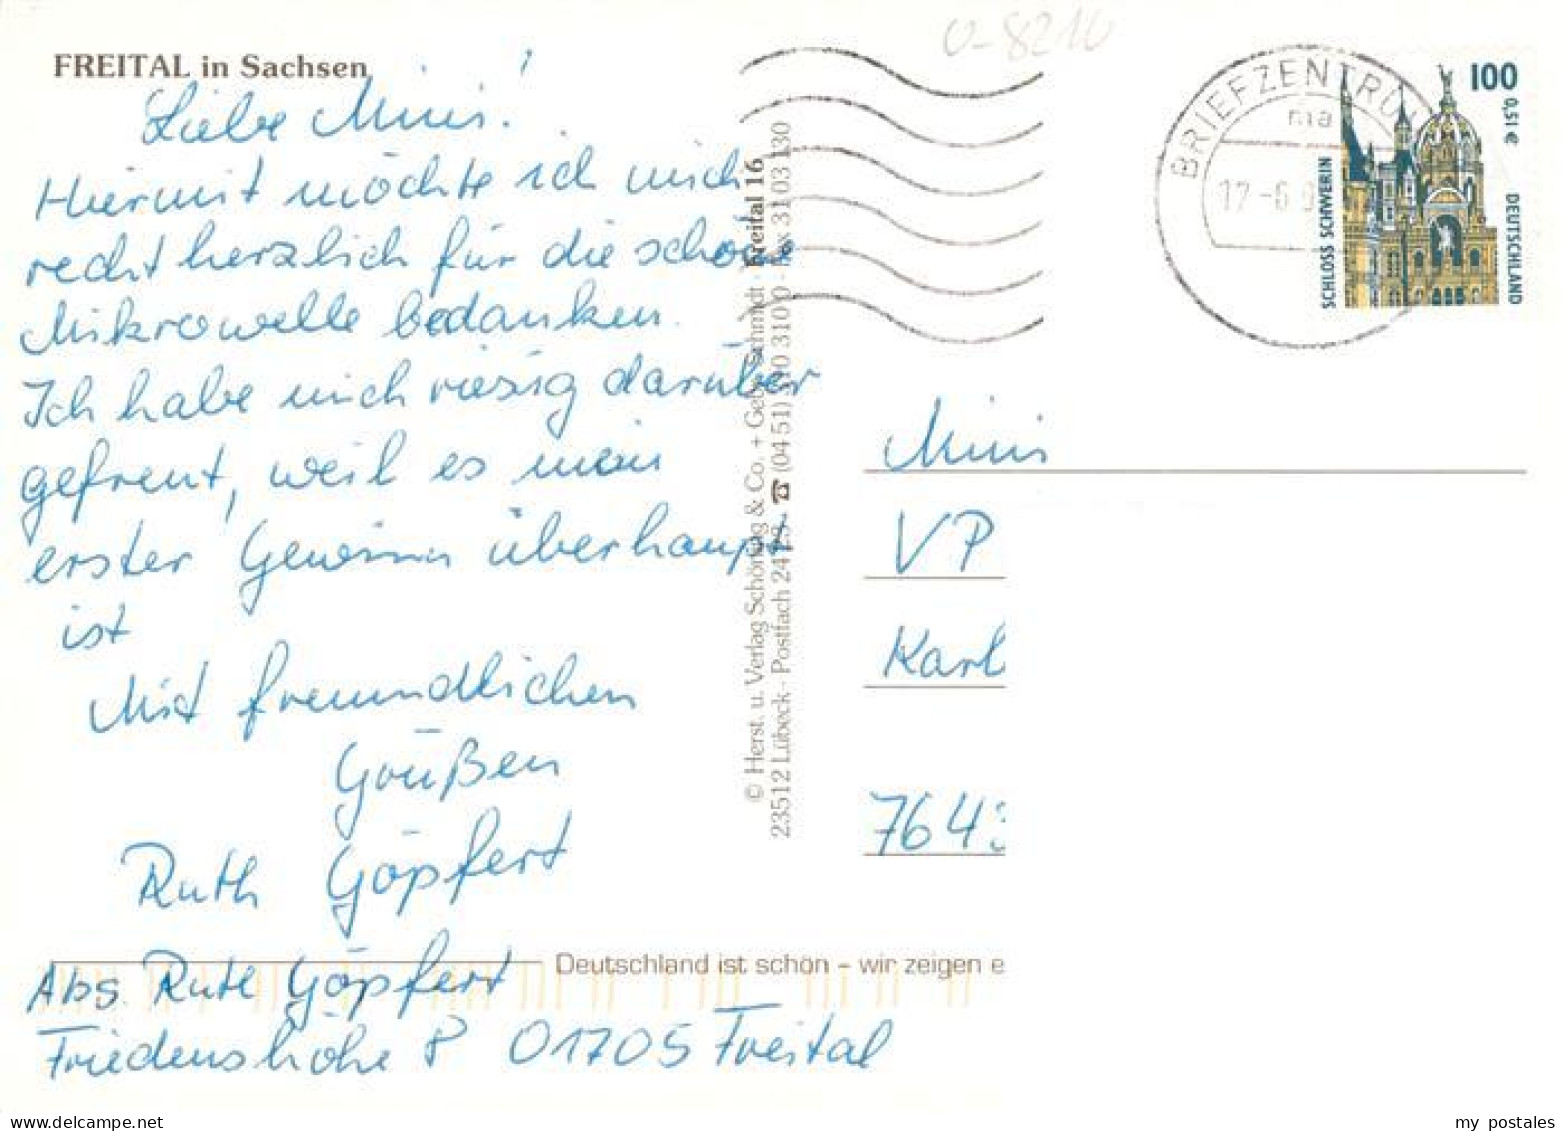 FREITAL in Sachsen
Liebe Minis!
Hiermit möchte ich mich
recht herzlich für die schöne
Mikrowelle bedanken.
Ich habe mich riesig darüber
gefreut, weil es mein
erster Gewinn überhaupt
ist
Mit freundlichen
Grüßen
Ruth Göpfert
Abs. Ruth Göpfert
Friedenshöhe 8 01705 Freital
© Herst. u. Verlag Schöning & Co. + Gebr. Schmidt · Freital 16
23512 Lübeck · Postfach 24 23 · ☎ (04 51) 3 10 310 0 · Fax 31 03 130
Deutschland ist schön – wir zeigen e
0-8210
BRIEFZENTRU
ma
12-6
100
0,51 €
SCHLOSS SCHWERIN
DEUTSCHLAND
Minis
VP
Karl
764
my postales